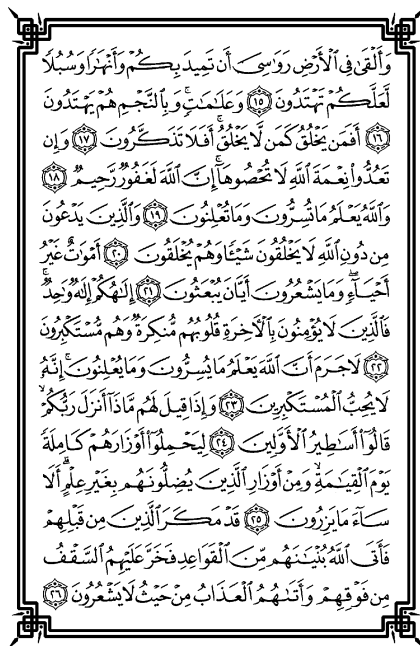 وَأَلْقَىٰ فِي ٱلْأَرْضِ رَوَٰسِىَ أَن تَمِيدَ بِكُمْ وَأَنْهَٰرًا وَسُبُلًا
لَّعَلَّكُمْ تَهْتَدُونَ ١٥ وَعَلَٰمَٰتٍ ۚ وَبِٱلنَّجْمِ هُمْ يَهْتَدُونَ
١٦ أَفَمَن يَخْلُقُ كَمَن لَّا يَخْلُقُ ۗ أَفَلَا تَذَكَّرُونَ ١٧ وَإِن
تَعُدُّوا۟ نِعْمَةَ ٱللَّهِ لَا تُحْصُوهَآ ۗ إِنَّ ٱللَّهَ لَغَفُورٌ رَّحِيمٌ ١٨
وَٱللَّهُ يَعْلَمُ مَا تُسِرُّونَ وَمَا تُعْلِنُونَ ١٩ وَٱلَّذِينَ يَدْعُونَ
مِن دُونِ ٱللَّهِ لَا يَخْلُقُونَ شَيْـًٔا وَهُمْ يُخْلَقُونَ ٢٠ أَمْوَٰتٌ غَيْرُ
أَحْيَآءٍ ۖ وَمَا يَشْعُرُونَ أَيَّانَ يُبْعَثُونَ ٢١ إِلَٰهُكُمْ إِلَٰهٌ وَٰحِدٌ ۚ
فَٱلَّذِينَ لَا يُؤْمِنُونَ بِٱلْـَٔاخِرَةِ قُلُوبُهُم مُّنكِرَةٌ وَهُم مُّسْتَكْبِرُونَ
٢٢ لَا جَرَمَ أَنَّ ٱللَّهَ يَعْلَمُ مَا يُسِرُّونَ وَمَا يُعْلِنُونَ ۚ إِنَّهُۥ
لَا يُحِبُّ ٱلْمُسْتَكْبِرِينَ ٢٣ وَإِذَا قِيلَ لَهُم مَّاذَآ أَنزَلَ رَبُّكُمْ ۙ
قَالُوٓا۟ أَسَٰطِيرُ ٱلْأَوَّلِينَ ٢٤ لِيَحْمِلُوٓا۟ أَوْزَارَهُمْ كَامِلَةً
يَوْمَ ٱلْقِيَٰمَةِ ۙ وَمِنْ أَوْزَارِ ٱلَّذِينَ يُضِلُّونَهُم بِغَيْرِ عِلْمٍ ۗ أَلَا
سَآءَ مَا يَزِرُونَ ٢٥ قَدْ مَكَرَ ٱلَّذِينَ مِن قَبْلِهِمْ
فَأَتَى ٱللَّهُ بُنْيَٰنَهُم مِّنَ ٱلْقَوَاعِدِ فَخَرَّ عَلَيْهِمُ ٱلسَّقْفُ
مِن فَوْقِهِمْ وَأَتَىٰهُمُ ٱلْعَذَابُ مِنْ حَيْثُ لَا يَشْعُرُونَ ٢٦